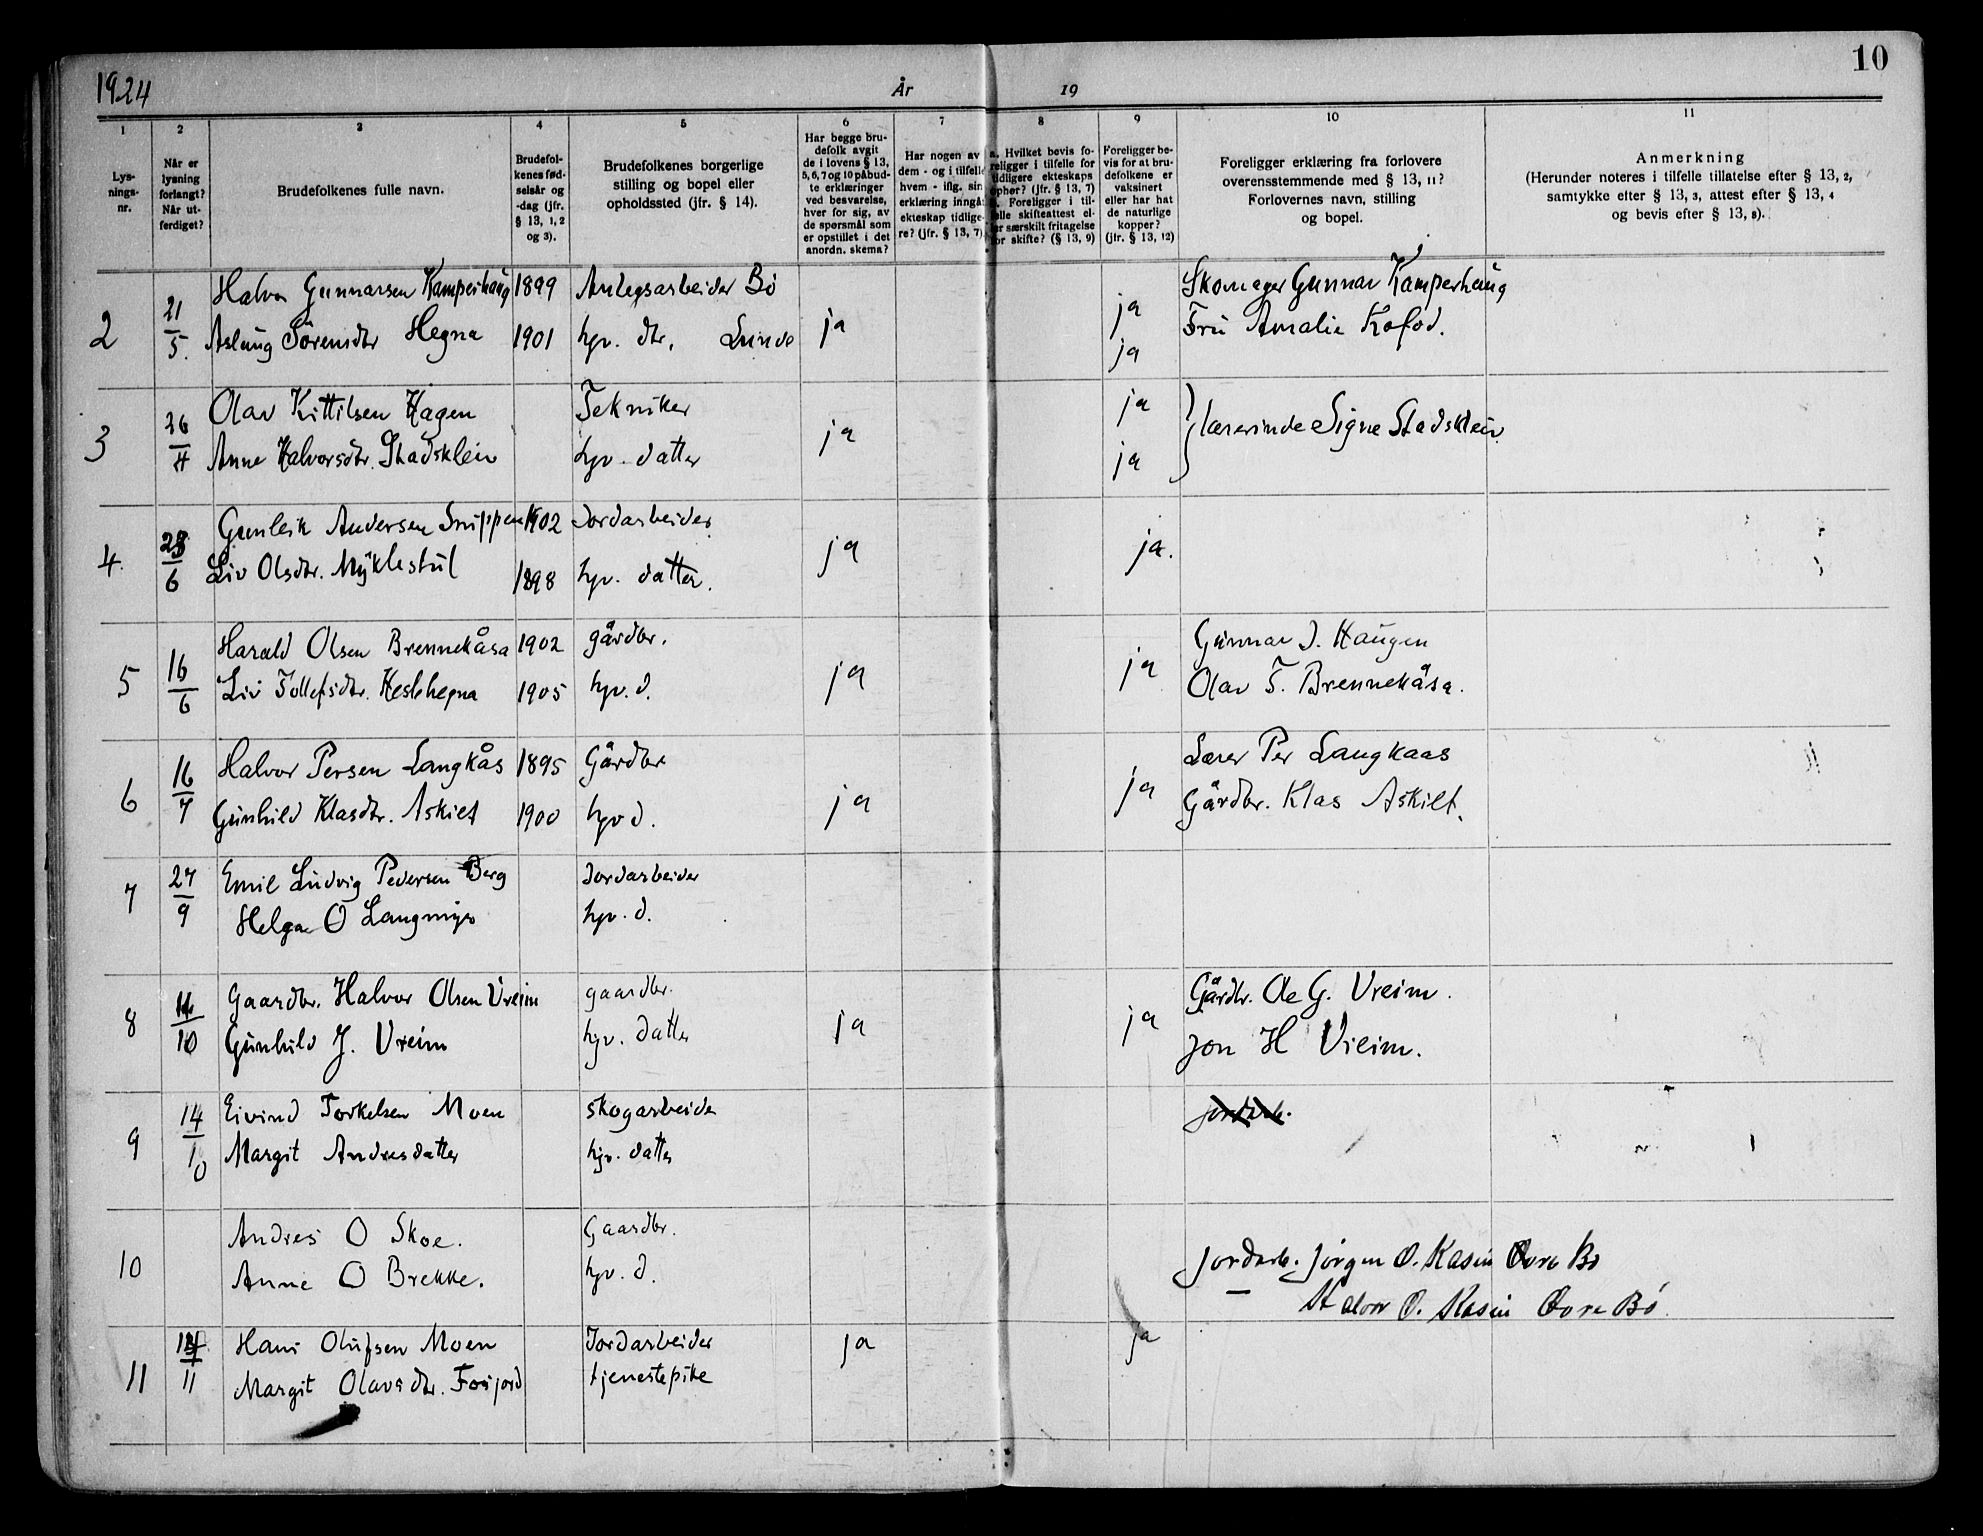 1924
År 19
10
1 2 3 4 5 6 7 8 9 10 11
Lys-
nings-
nr.
Når er
lysning
forlangt?
Når ut-
ferdiget?
Brudefolkenes fulle navn.
Brudefol-
kenes fød-
selsår og
-dag (jfr.
§ 13, 1, 2
og 3).
Brudefolkenes borgerlige
stilling og bopel eller
opholdssted (jfr. § 14).
Har begge bru-
defolk avgit
de i lovens § 13,
5, 6, 7 og 10 påbud-
te erklæringer
ved besvarelse,
hver for sig, av
de spørsmål som
er opstillet i det
anordn. skema?
Har nogen av
dem - og i tilfelle
hvem - iflg. sin
erklæring inngå
ekteskap tidlige-
re? (jfr. § 13, 7)
a. Hvilket bevis fo-
religger i tilfelle for
tidligere ekteskaps
ophør? (jfr. § 13, 7)
. Foreligger i til-
elle skifteattest el-
er særskilt fritagelse
for skifte? (§ 13, 9)
Foreligger be-
vis for at bru-
defolkene er
vaksinert
eller har hat
de naturlige
kopper?
(jfr. § 13, 12)
Foreligger erklæring fra forlovere
overensstemmende med § 13, 11?
Forlovernes navn, stilling
og bopel.
Anmerkning
(Herunder noteres i tilfelle tillatelse efter § 13, 2,
samtykke efter § 13, 3, attest efter § 13, 4
og bevis efter § 13, 8).
2 21/5. Halvor Gunnarsen Kamperhaug 1899 Anlegsarbeider Bø ja ja Skomager Gunnar Kamperhaug
Aslaug Sørensdtr Hegna 1901 hjv. dtr. Lunde ja Fru Amalie Kofod.
3 26/4 Olav Kittilsen Hagen Tekniker ja ja } lærerinde Signe Stadsklein
Anne Halvorsdtr. Stadsklein hjv. datter ja
4. 28/6 Gunleik Andersen Snippen 1902 Jordarbeider ja ja.
Liv Olsdtr. Myklestul 1898 hjv. datter.
5 16/6 Harald Olsen Brennekåsa 1902 gårdbr. ja ja Gunnar J. Haugen
Liv Tollefsdtr. Heslehegna 1905 hjv. d. Olav T. Brennekåsa.
6 16/7 Halvor Persen Langkås 1895 Gårdbr ja ja Lærer Per Langkaas
Gunhild Klasdtr. Askilt 1900 hjv d. Gårdbr. Klas Askilt.
7 27/9 Emil Ludvig Pedersen Berg Jordarbeider
Helga O Langmyr hjv. d.
8 14/10 Gaardbr. Halvor Olsen Vreim gaardbr. ja ja Gårdbr. Ole G. Vreim.
Gunhild J. Vreim hjv. datter Jon H Vreim.
9 14/10 Eivind Torkelsen Moen skogarbeider jordarb.
Margit Andresdatter hjv. datter
10 Andres O Skoe. Gaardbr. jordarb. Jørgen O. Kasin Øvre Bø
Anne O Brekke. hjv. d. Halvor O. Kasin Øvre Bø
11 /11 Hans Olufsen Moen Jordarbeider ja ja
Margit Olavsdtr. Fosjord tjenestepike